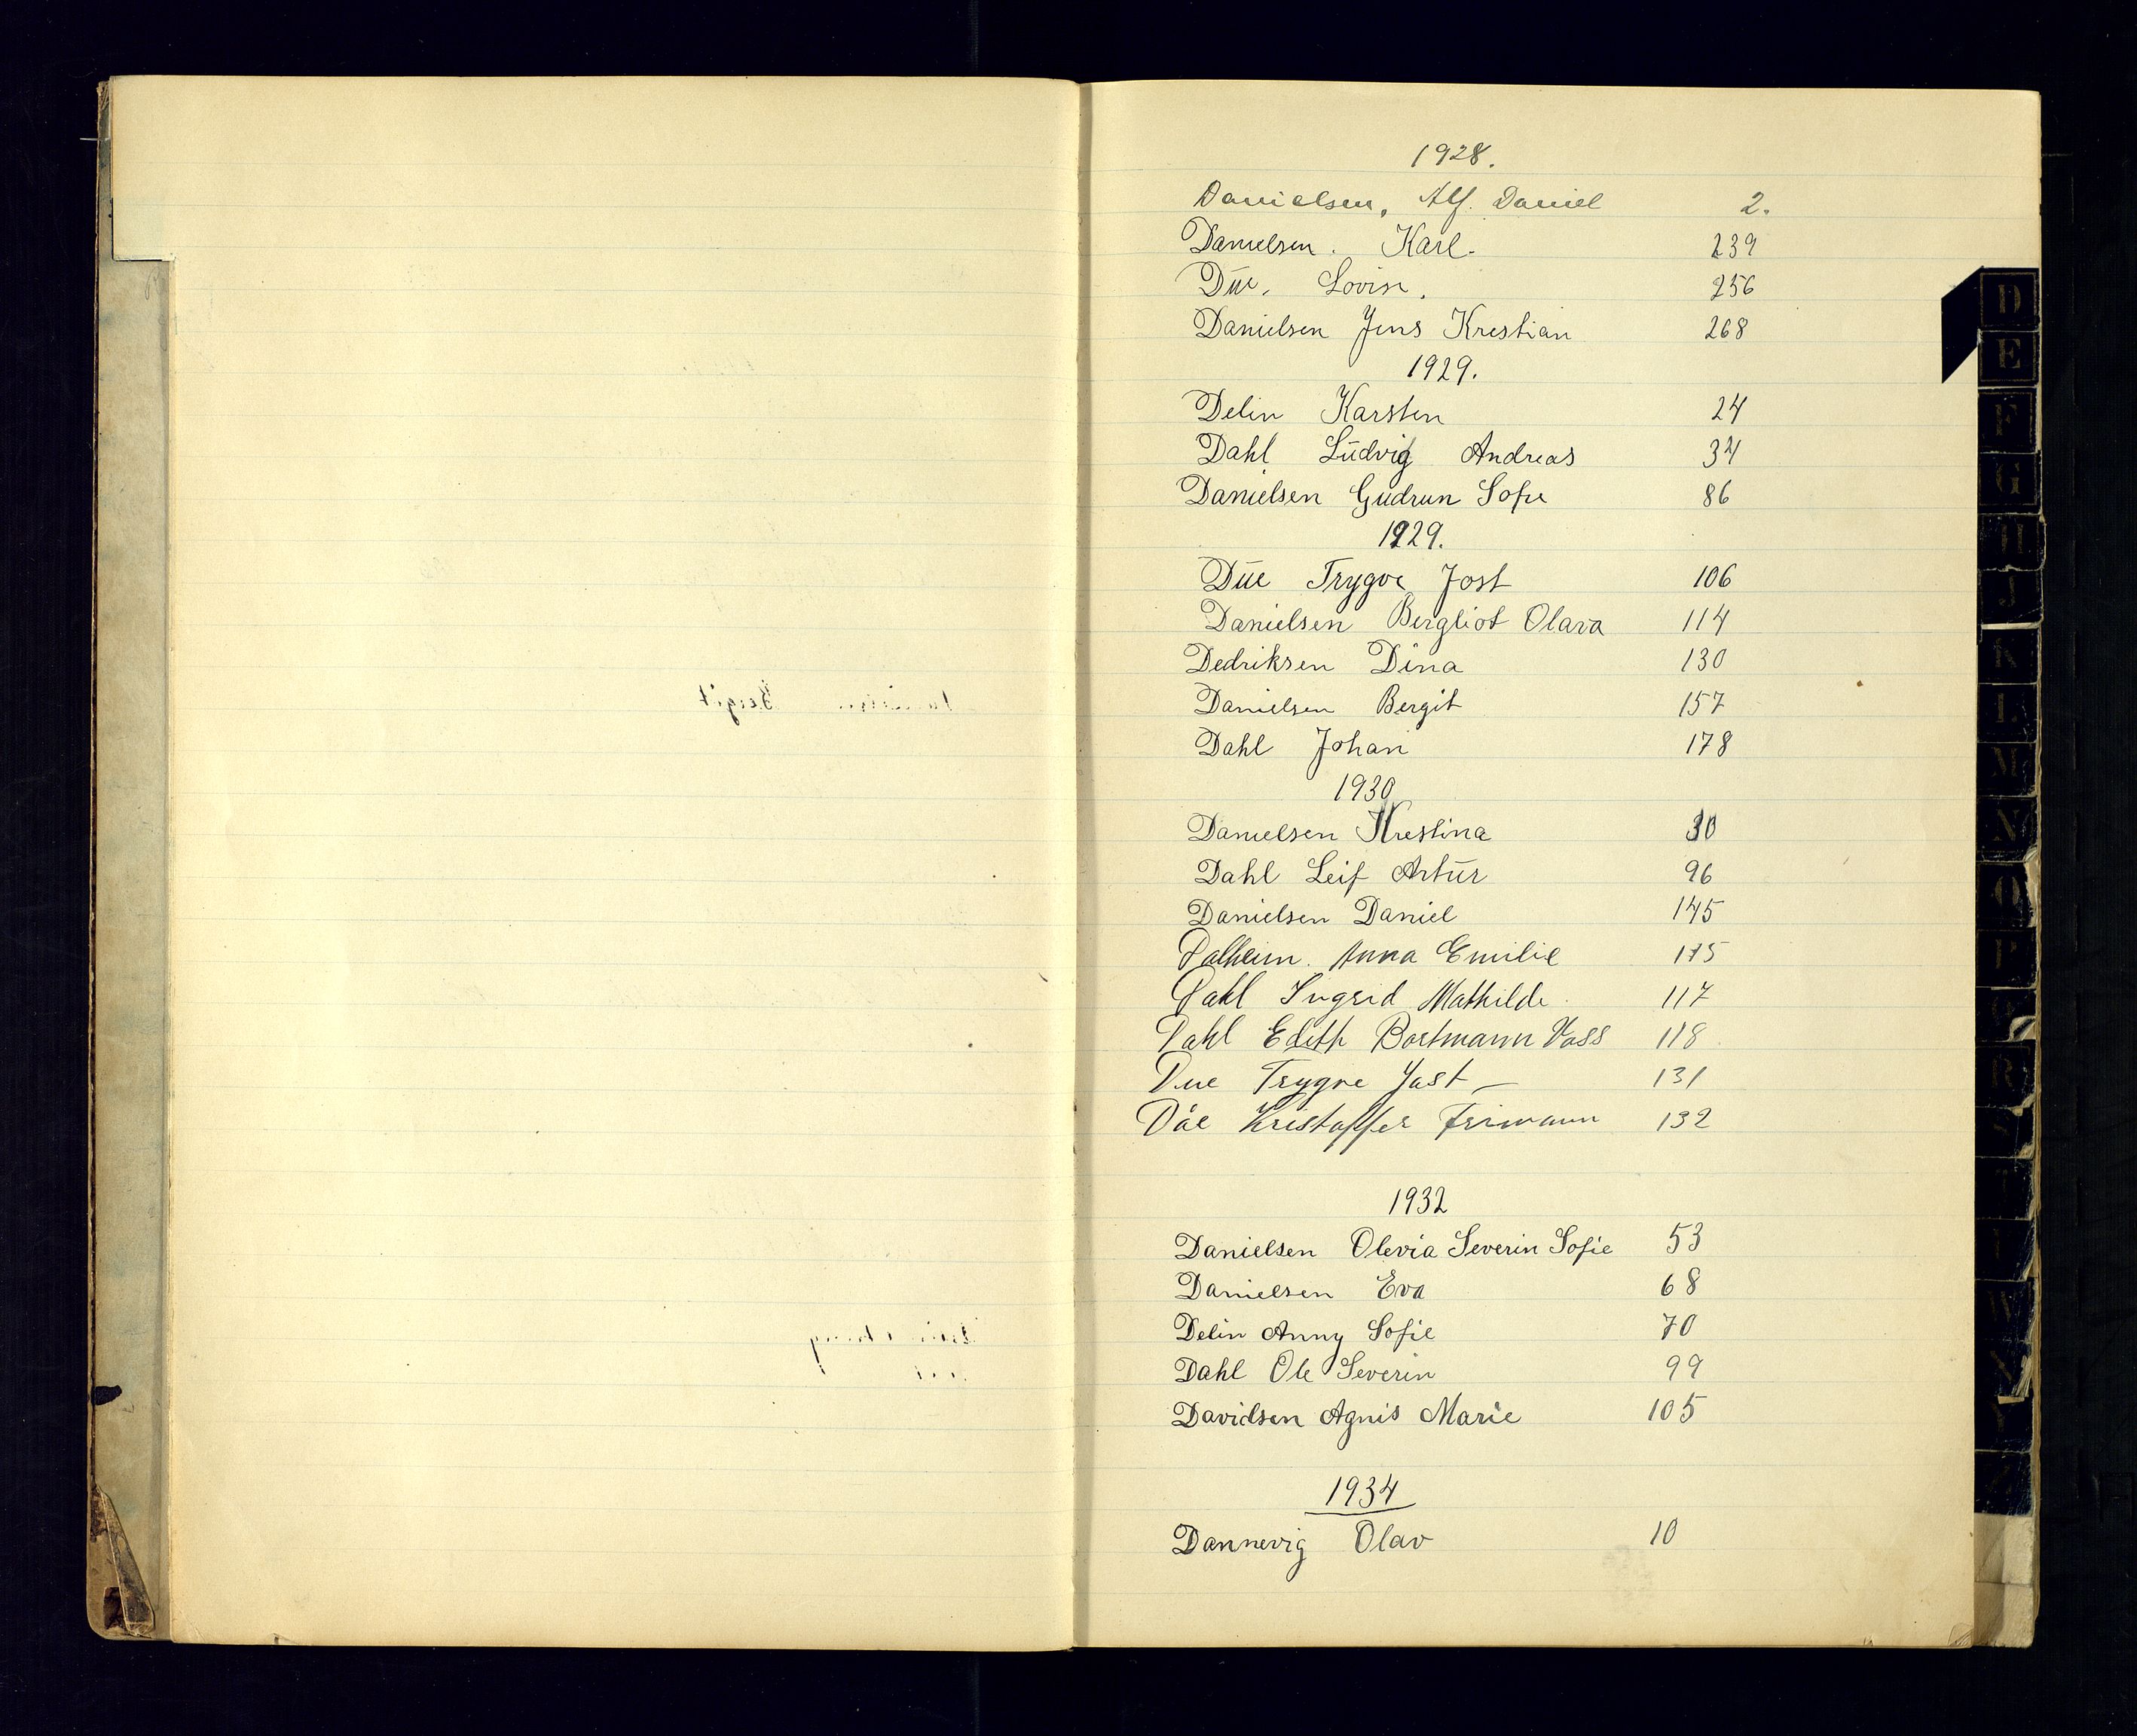 1928.
Danielsen, Alf. Daniel 2.
Danielsen. Karl. 239
Due, Lovise. 256
Danielsen Jens Krestian 268
1929.
Delin Karsten 24
Dahl Ludvig Andreas 34
Danielsen Gudrun Sofie 86
1929.
Due Trygve Jost 106
Danielsen Bergliot Olava 114
Dedriksen Dina 130
Danielsen Bergit 157
Dahl Johan 178
1930
Danielsen Krestina 30
Dahl Leif Artur 96
Danielsen Daniel 145
Dalheim. Anna Emilie 175
Dahl Ingrid Mathilde 117
Dahl Edith Bortmann Voss 118
Due Trygve Jast — 131
Dåe Kristoffer Frimann 132
1932
Danielsen Olevia Severin Sofie 53
Danielsen Eva 68
Delin Anny Sofie 70
Dahl Ole Severin 99
Davidsen Agnis Marie 105
1934
Dannevig Olav 10
D
E
F
G
H
J
K
L
M
N
O
P
R